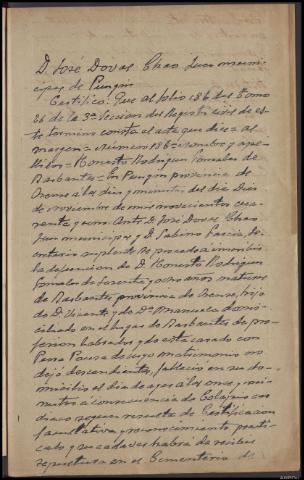 D. José Doval Chao Juez muni-
cipal de Pungin
Certifico: Que al folio 186 del tomo
de la 3ª Seccion del Registro civil de es-
te termino consta el acta que dice = al
margen = Número 186 = nombre y ape-
llidos = Honesto Rodriguez Gonzalez de
Barbantes = En Pungin provincia de
Orense a las diez y minutos del dia Diez
de noviembre de mil novecientos cua-
renta y uno. Ante D. José Doval Chao
Juez municipal y D. Sabino Garcia Se-
cretario suplente se procede a inscribir
la defuncion de D. Honesto Rodriguez
Gonzalez de sesenta y ocho años natural
de Barbantes provincia de Orense, hijo
de D. Vicente y de Dª Manuela domi-
ciliado en el lugar de Barbantes de pro-
fesion labrador y de estado casado con
Pura de cuyo matrimonio no
dejó descendientes, falleció en su do-
micilio el dia de ayer a las once y mi-
nutos a consecuencia de Colapso car-
diaco segun resulta de Certificacion
facultativa y reconocimiento practi-
cado y su cadaver habrá de recibir
sepultura en el Cementerio de